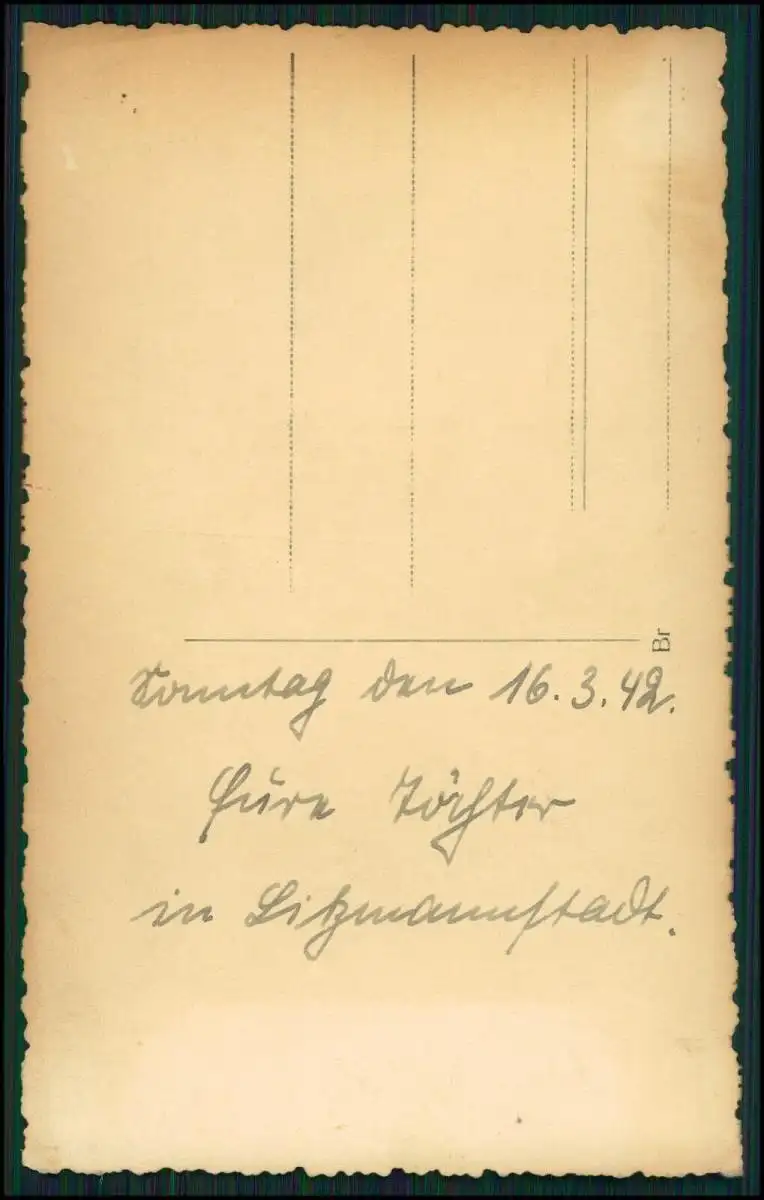 Br
Sonntag den 16.3.42.
Eure Töchter
in Litzmannstadt.